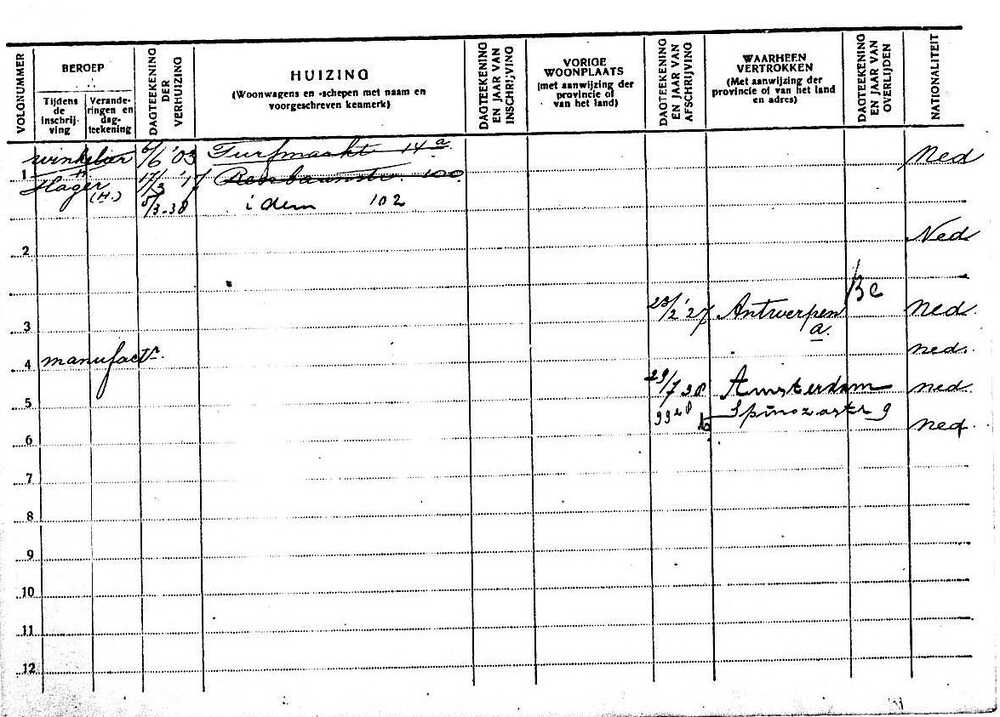 VOLGNUMMER
BEROEP
Tijdens de inschrijving
Veranderingen en dagteekening
DAGTEEKENING DER VERHUIZING
HUIZING
(Woonwagens en -schepen met naam en voorgeschreven kenmerk)
DAGTEEKENING EN JAAR VAN INSCHRIJVING
VORIGE WOONPLAATS
(met aanwijzing der provincie of van het land)
DAGTEEKENING EN JAAR VAN AFSCHRIJVING
WAARHEEN VERTROKKEN
(Met aanwijzing der provincie of van het land en adres)
DAGTEEKENING EN JAAR VAN OVERLIJDEN
NATIONALITEIT
6/6 '03 Turfmarkt 14a Ned
1 Slager 17/3 '17 100
(H.) 5/3-38 idem 102
2 Ned
3 '27 Antwerpen a Ned.
4 manufactr. ned.
5 29/7 38 Amsterdam ned.
6 Spinozastr 9 ned.
7
8
9
10
11
12